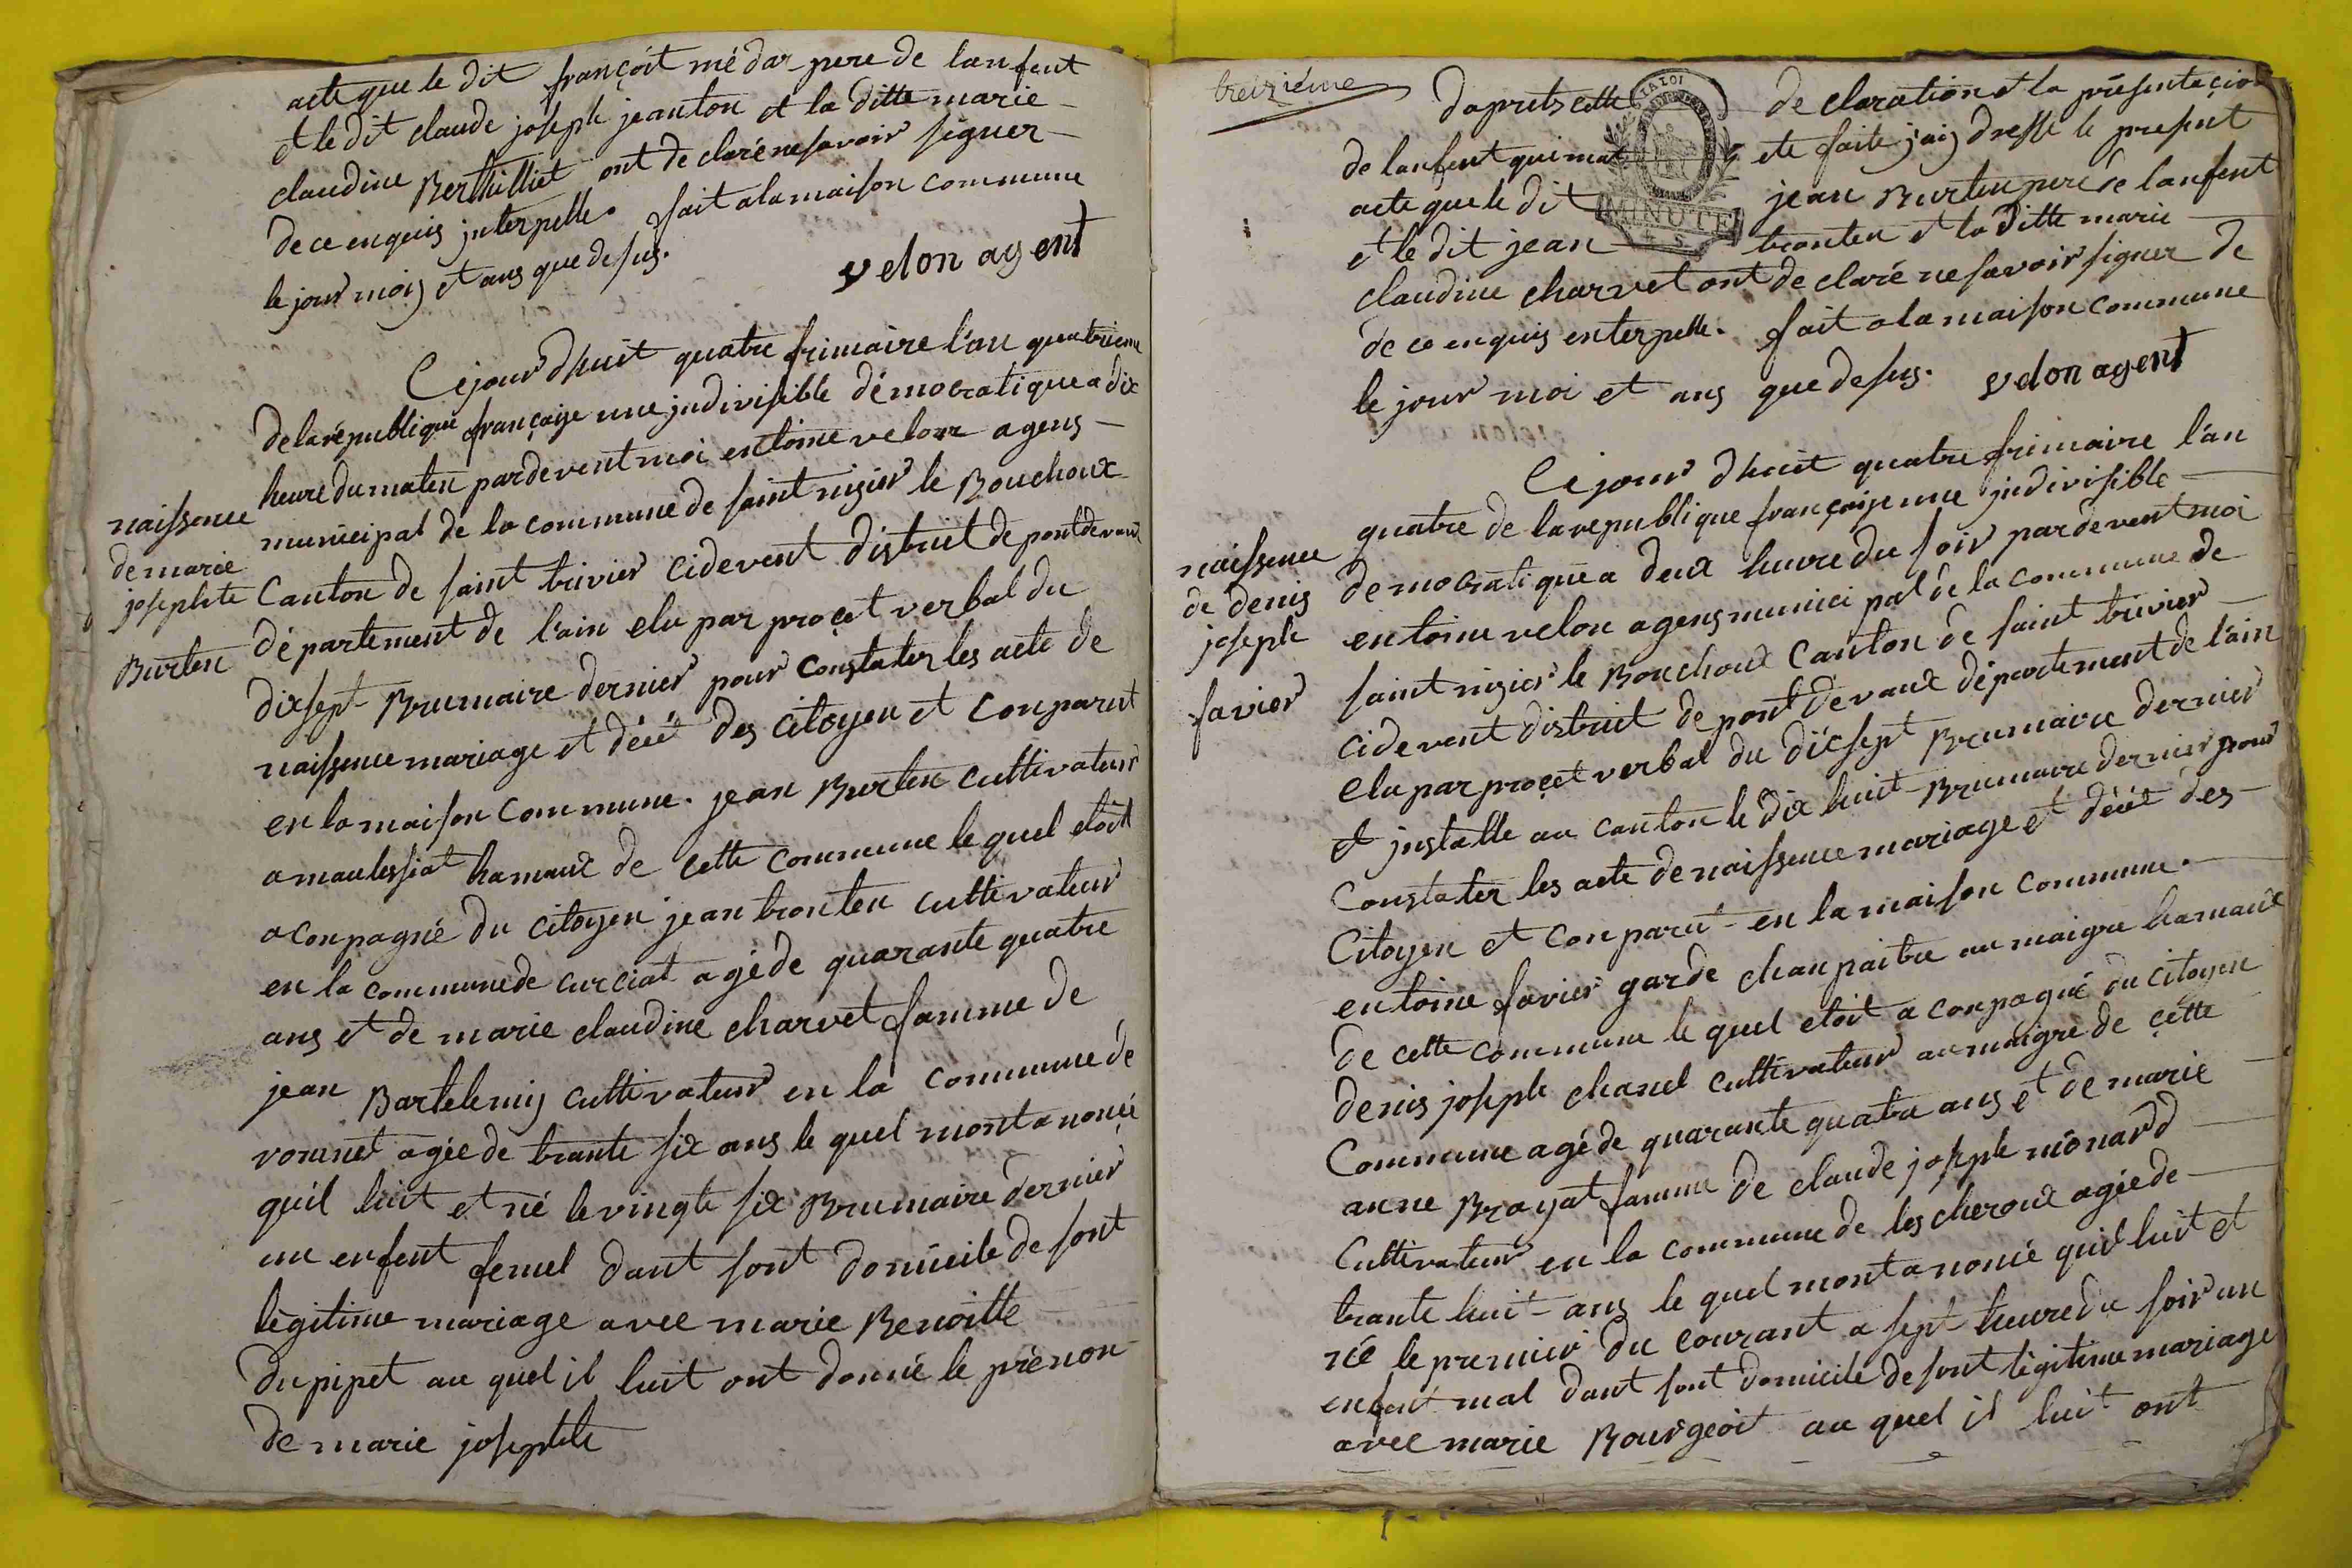 acte que le dit françoit médar pere de lanfent
et le dit claude joseph jeanton et la ditte marie
claudine Berthilliet ont de claré ne savoir signer
de ce enquis jnterpelle. fait a la maison commune
le jour mois et ans que de sus.
velon agent
Ce jour dhuit quatre frimaire l'an quatrieme
de la république françaije une jndivisible démocratique a dix
heure du maten par devent moi entoine velon agens
municipal de la commune de saint nizier le Bouchoux
naissence
de marie
josephte
Burten
Canton de saint trivier cidevent district de pont de vaux
département de l'ain elu par proçet verbal du
dixsept Brumaire dernier pour constater les acte de
naissence mariage et décét des citoyen et conparut
en la maison commune. jean Burten cultivateur
a maulessiat hamaux de cette commune le quel etoit
aconpagné du citoyen jean tronten cultivateur
en la commune de curciat agé de quarante quatre
ans et de marie claudine charvet famme de
jean Bartelemij cultivateur en la commune de
vorunet agée de trante six ans le quel mont a noncé
quil luit et né le vingte six Brumaire dernier
un enfent femel dant sont domicile de sont
légitime mariage avec marie Benoitte
du pipet au quel il luit ont donné le prénon
de marie josephte
treizieme
daprets cette de claration et la présentaçion
de lanfent qui mat ete faite j'aij dressé le present
acte que le dit jean Burten pere de lanfent
et le dit jean tranten et la ditte marie
claudine charvet ont de claré ne savoir signer de
de ce enquis enterpelle. fait a la maison commune
le jour moi et ans que de sus. velon agent
LA LOI
MINUTE
Ce jour dhuit quatre frimaire l'an
quatre de la republique françaije une jndivisible
naissence
de denis
joseph
favier
democratique a deux heure du soir par devent moi
entoine velon agens munici pal de la commune de
saint nizier le Bouchoux Canton de saint trivier
cidevent district de pont de vaux département de l'ain
elu par proçet verbal du dicsept Brumaire dernier
et jnstalle au canton le dix huit Brumaire dernier pour
constater les acte de naissence mariage et décét des
Citoyen et conparut en la maison commune.
entoine favier garde chanpaitre au maigre hamaux
de cette commune le quel etoit a conpagné du citoyen
denis joseph chanel cultivateur au maigre de cette
Commune agé de quarante quatre ans et de marie
anne Brayat famme de claude joseph monard
Cultivateur en la commune de lescheroux agée de
trante huit ans le quel mont a noncé quil luit et
né le premier du courant a sept heure du soir un
enfent mal dant sont domicile de sont légitime mariage
avec marie Bourgeoit au quel il luit ont